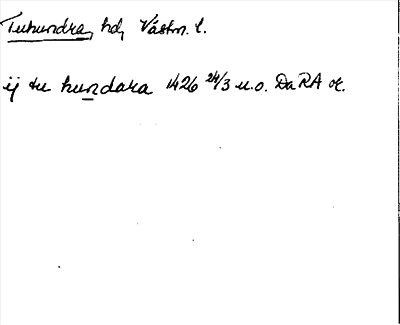 Tuhundra, hd, Västm. l.
ij tu hundara 1426 24/3 u.o. DaRA or.